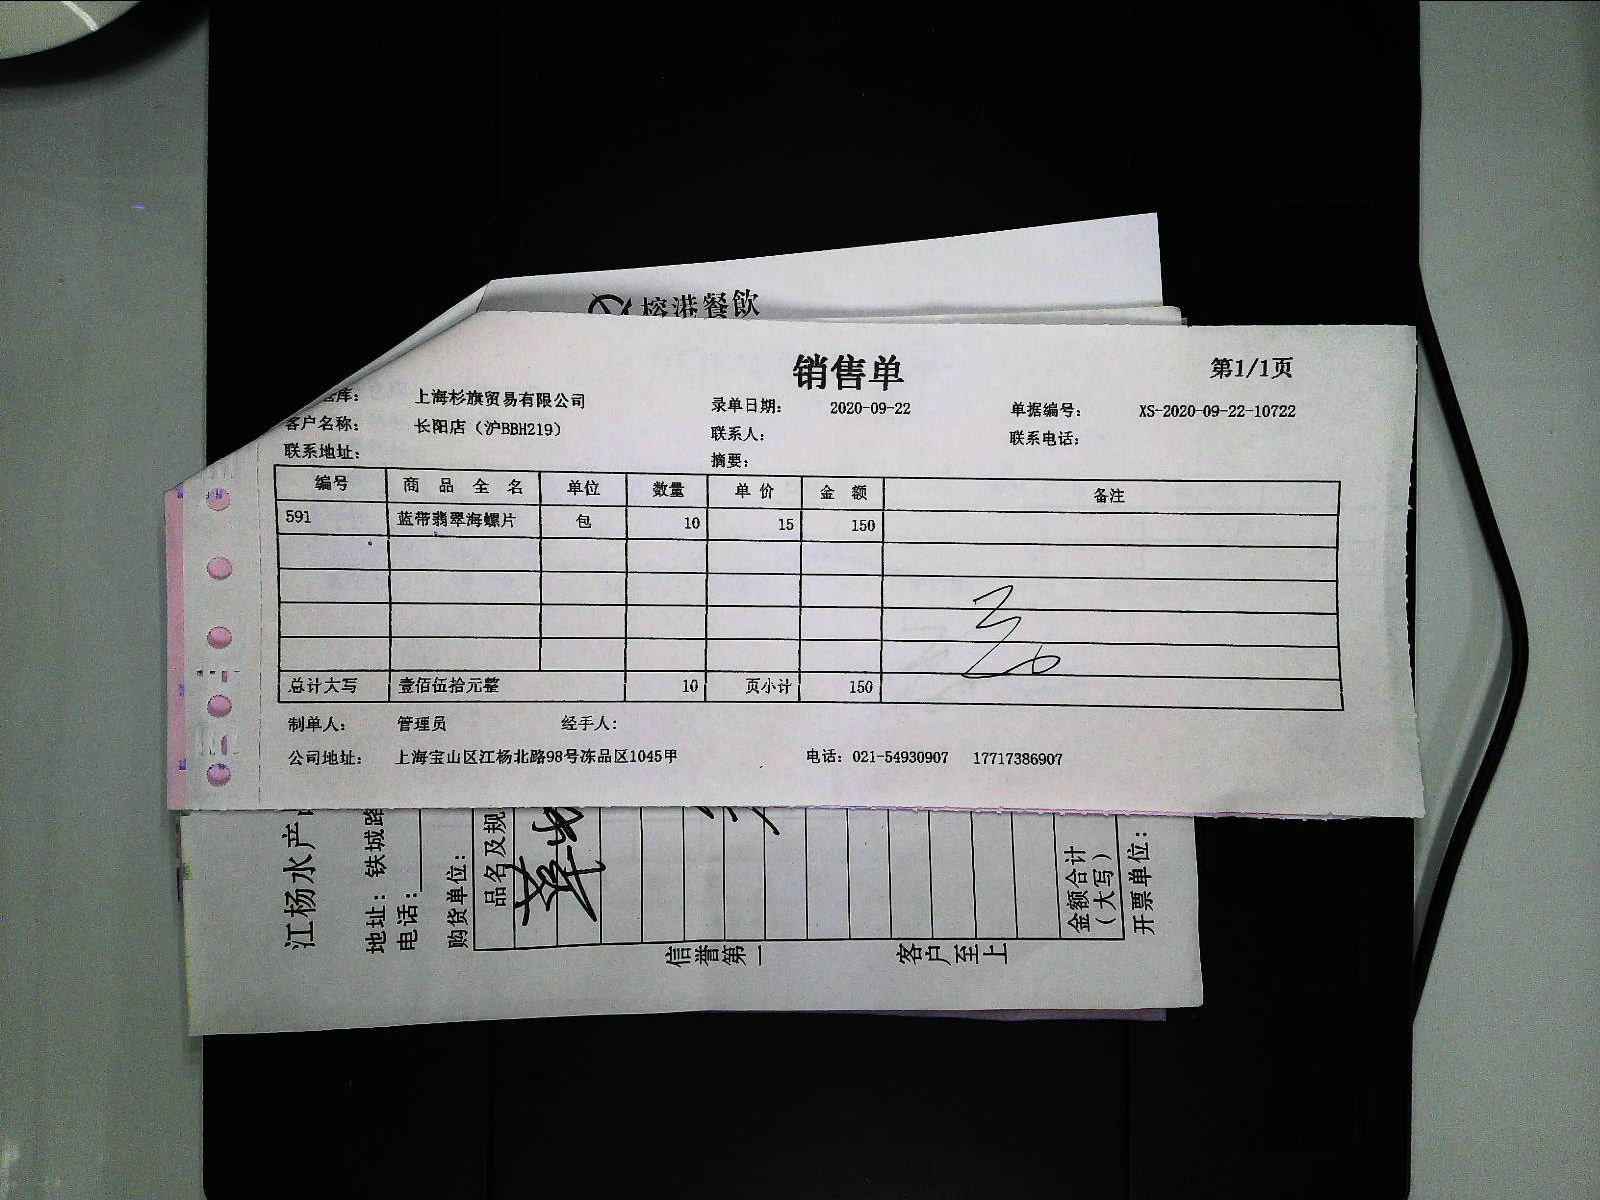 榕港餐飲
销售单
第1/1页
库： 上海杉旗贸易有限公司 录单日期： 2020-09-22 单据编号： XS-2020-09-22-10722
客户名称： 长阳店（沪BBH219） 联系人： 联系电话：
联系地址： 摘要：
编号 商品全名 单位 数量 单价 金额 备注
591 蓝带翡翠海螺片 包 10 15 150
总计大写 壹佰伍拾元整 10 页小计 150
制单人： 管理员 经手人：
公司地址： 上海宝山区江杨北路98号冻品区1045甲 电话：021-54930907 17717386907
江杨水产
地址：铁城路
电话：
购货单位：
品名及规
金额合计
（大写）
开票单位：
信誉第一 客户至上